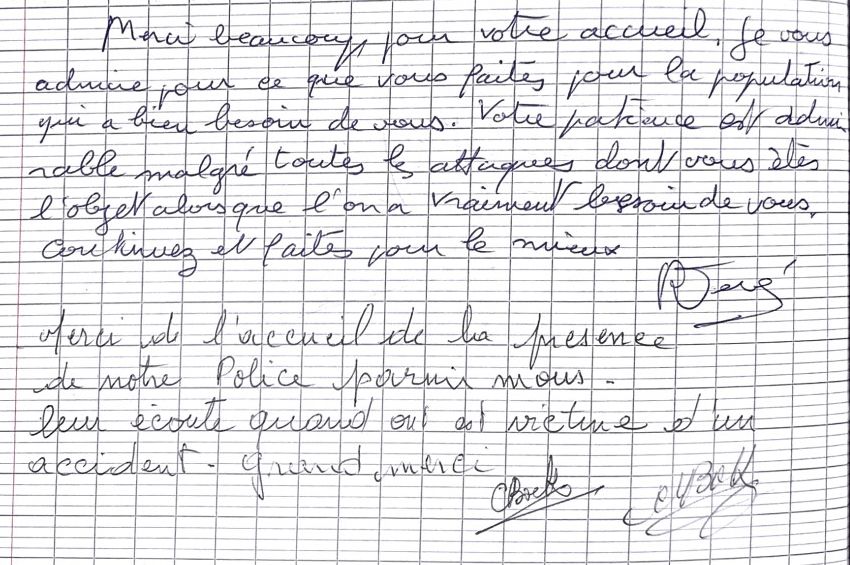 Merci beaucoup pour votre accueil. Je vous
admire pour ce que vous faites pour la population
qui a bien besoin de vous. Votre patience est admi
rable malgré toutes les attaques dont vous êtes
l'objet alors que l'on a vraiment besoin de vous.
Continuez et faites pour le mieux
Merci de l'accueil de la présence
de notre Police parmi nous.
leur écoute quand on est victime d'un
accident. Grand merci